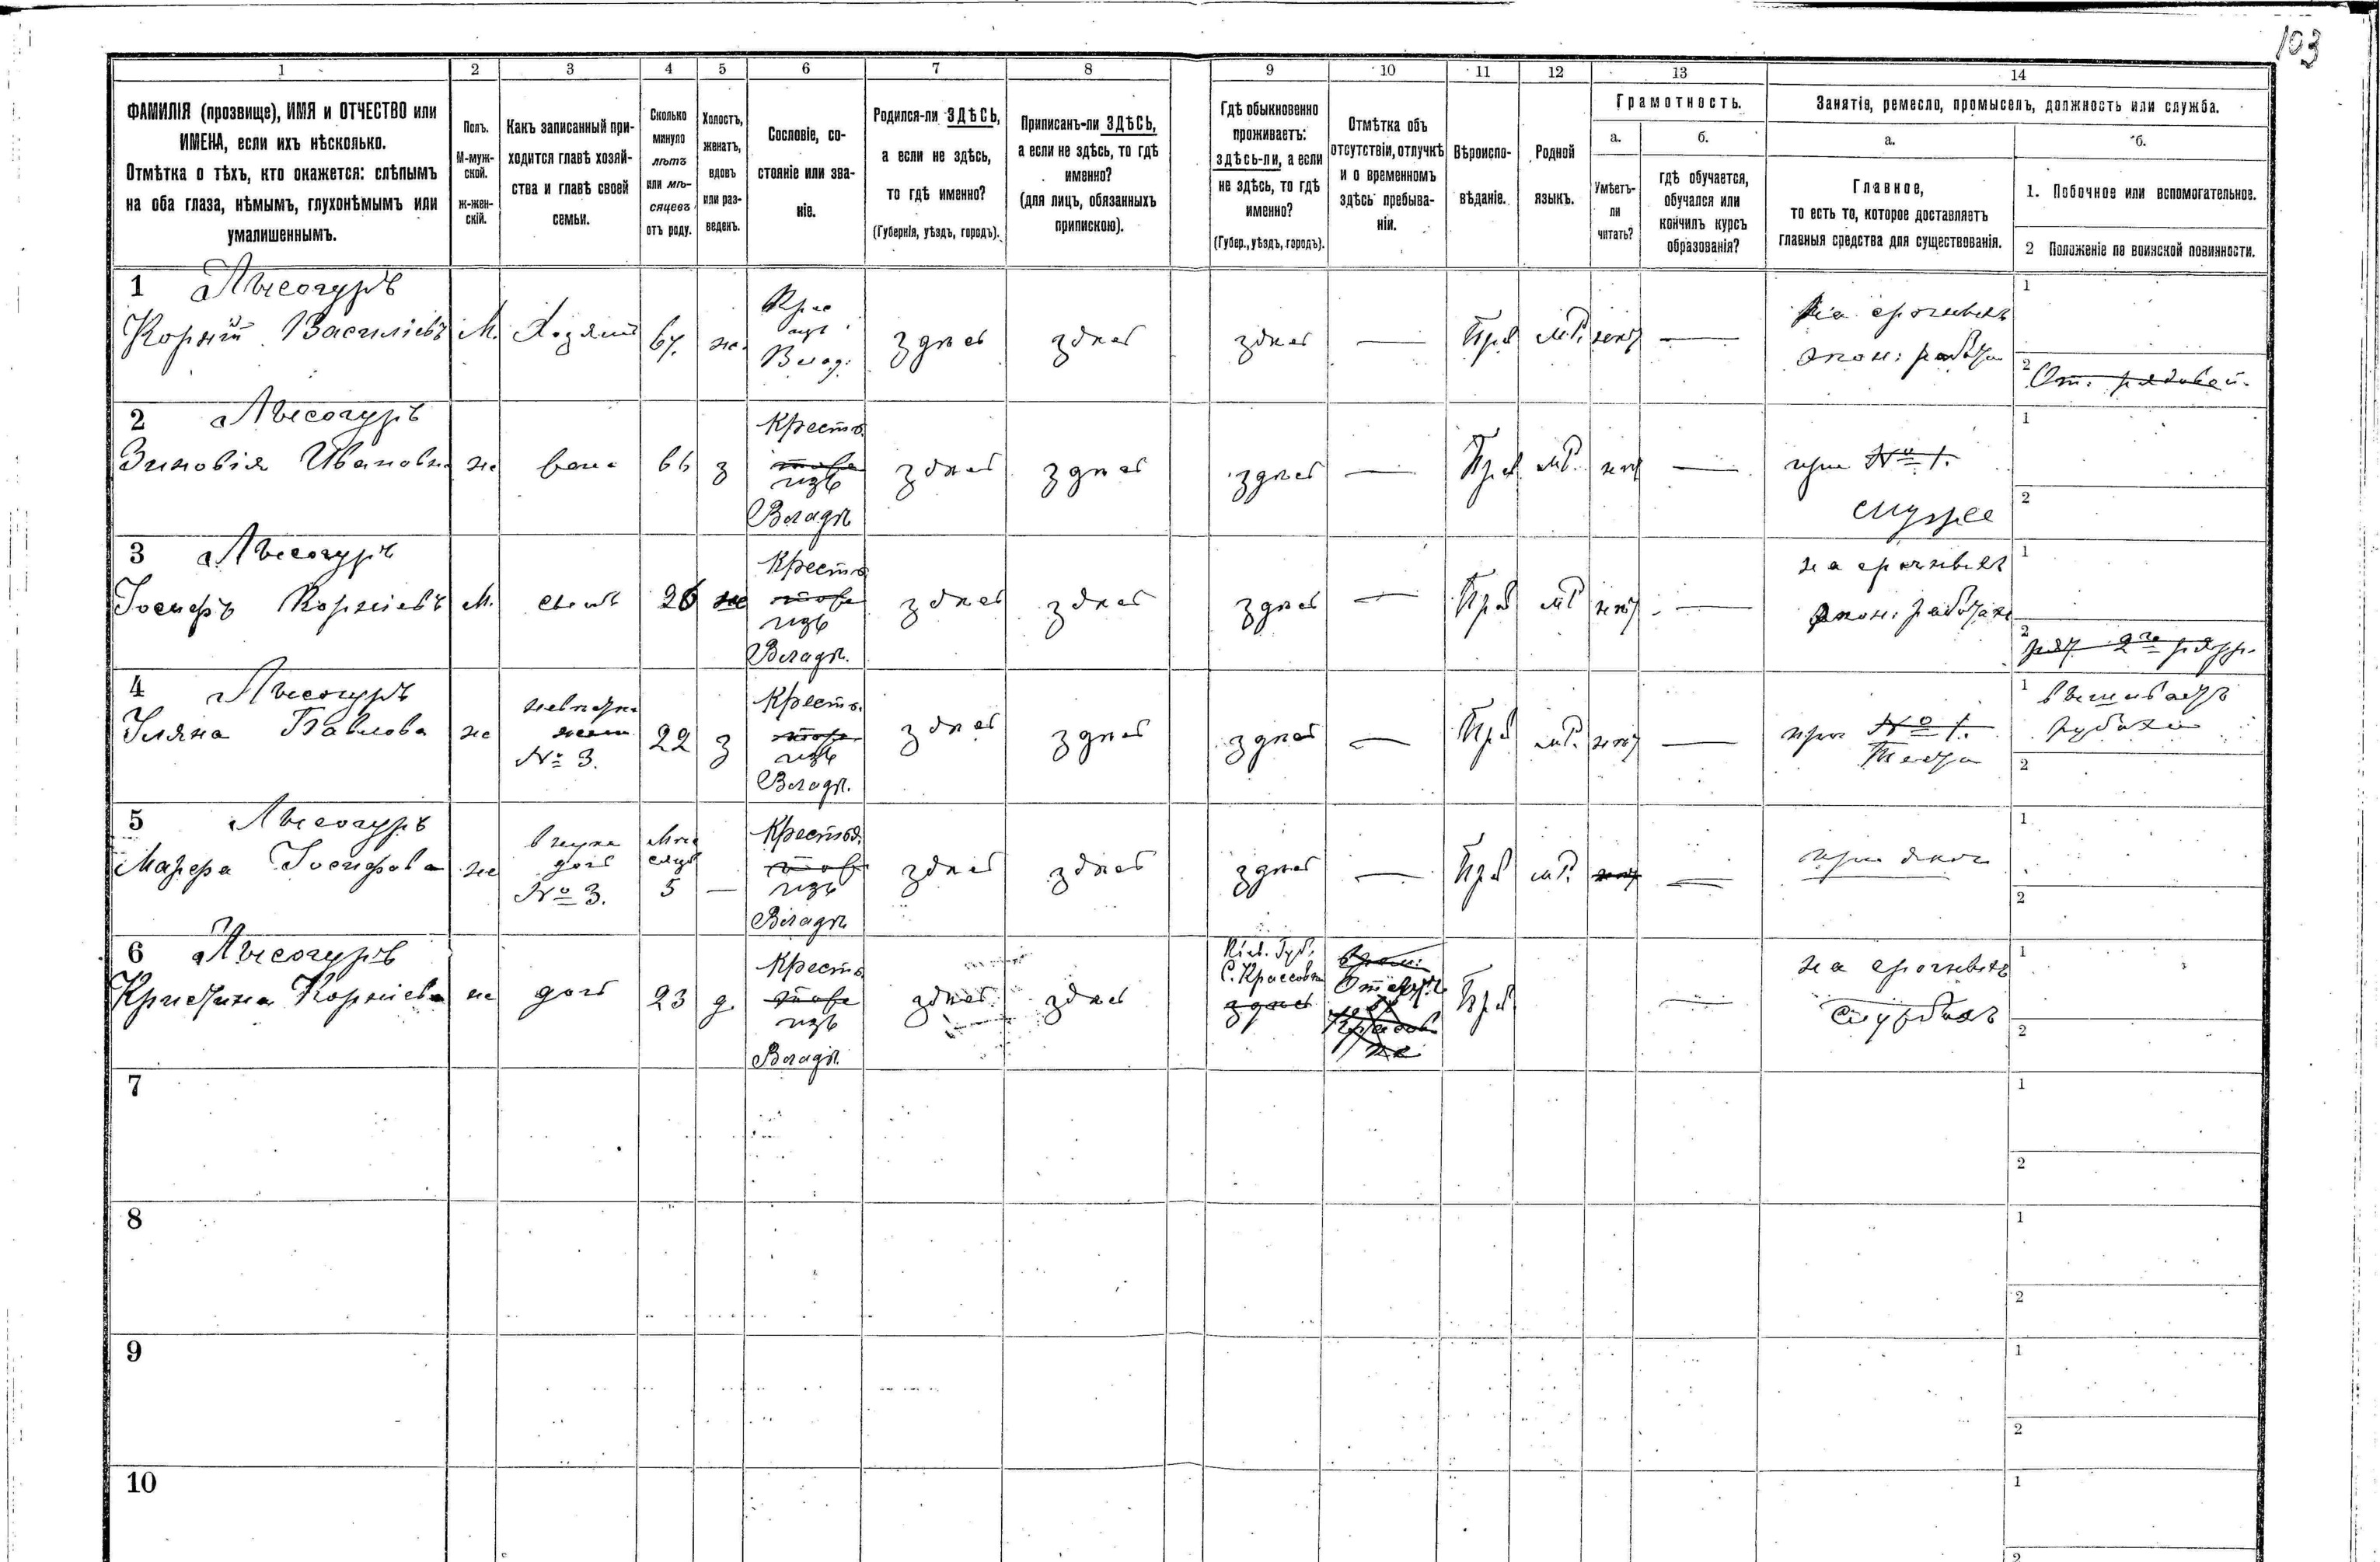 103
1 2 3 4 5 6 7 8 9 10 11 12 13 14
ФАМИЛІЯ (прозвище), ИМЯ и ОТЧЕСТВО или
ИМЕНА, если ихъ нѣсколько.
Отмѣтка о тѣхъ, кто окажется: слѣпымъ
на оба глаза, нѣмымъ, глухонѣмымъ или
умалишеннымъ.
Полъ.
М-муж-
ской.
ж-жен-
скій.
Какъ записанный при-
ходится главѣ хозяй-
ства и главѣ своей
семьи.
Сколько
минуло
лѣтъ
или мѣ-
сяцевъ
отъ роду.
Холостъ,
женатъ,
вдовъ
или раз-
веденъ.
Сословіе, со-
стояніе или зва-
ніе.
Родился-ли ЗДѢСЬ,
а если не здѣсь,
то гдѣ именно?
(Губернія, уѣздъ, городъ).
Приписанъ-ли ЗДѢСЬ,
а если не здѣсь, то гдѣ
именно?
(для лицъ, обязанныхъ
припискою).
Гдѣ обыкновенно
проживаетъ:
здѣсь-ли, а если
не здѣсь, то гдѣ
именно?
(Губер., уѣздъ, городъ).
Отмѣтка объ
отсутствіи, отлучкѣ
и о временномъ
здѣсь пребыва-
ніи.
Вѣроиспо-
вѣданіе.
Родной
языкъ.
Грамотность.
а.
Умѣетъ-
ли
читать?
б.
гдѣ обучается,
обучался или
кончилъ курсъ
образованія?
Занятіе, ремесло, промыселъ, должность или служба.
а.
Главное,
то есть то, которое доставляетъ
главныя средства для существованія.
б.
1. Побочное или вспомогательное.
2 Положеніе по воинской повинности.
1 Лысогуръ
Корній Василіевъ М. Хозяинъ 67. ж.
изъ
Влад.
здѣсь здѣсь здѣсь — Пра м.Р. нѣтъ —
на срочныхъ
экон: работа
1
2 От. рядовой.
2 Лысогуръ
Зиновія Иванова ж жена 66 з
Крестья
изъ
Владѣ
здѣсь здѣсь здѣсь — Пра м.Р. нѣтъ —
при № 1.
мужѣ
1
2
3 Лысогуръ
Іосифъ Корніевъ М. сынъ 26 же
Крестья
изъ
Владѣ.
здѣсь здѣсь здѣсь — Пра м.Р нѣтъ —
на срочныхъ
экон: работахъ
1
2
4 Лысогуръ
Уляна Павлова ж
невѣстка
жена
№ 3.
22 з
Крестья.
изъ
Владѣ.
здѣсь здѣсь здѣсь — Пра м.Р. нѣтъ —
при № 1.
1 вышиваетъ
рубахи
2
5 Лысогуръ
Марфа Іосифова ж
внука
дочь
№ 3.
Мѣ
сяцъ
5
—
Крестья.
изъ
Владѣ
здѣсь здѣсь здѣсь — Пра м.Р. нѣтъ —
при
1
2
6 Лысогуръ
Кристина Корніева ж дочь 23 д
Крестья
изъ
Владѣ.
здѣсь здѣсь
Кіев. Губ.
С. Крассовка
здѣсь
Пра —
на срочныхъ
1
2
7 1
2
8 1
2
9 1
2
10 1
2